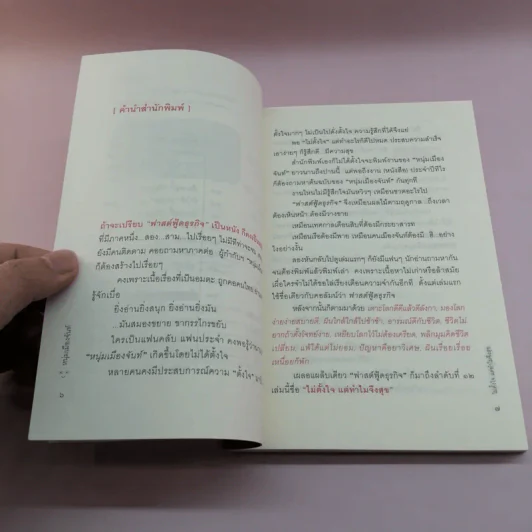 [ คำนำสำนักพิมพ์ ]
ถ้าจะเปรียบ "ฟาสต์ฟู้ดธุรกิจ" เป็นหนัง ก็คงเป็นหนัง
ที่มีภาคหนึ่ง..สอง..สาม..ไปเรื่อยๆ ไม่มีทีท่าว่าจะ
ยังมีคนติดตาม คอยถามหาภาคต่อ ผู้กำกับฯ "หนุ่ม
ก็ต้องสร้างไปเรื่อยๆ
คงเพราะเนื้อเรื่องที่เป็นอมตะ ถูกคอคนไทย
รู้จักเบื่อ
ยิ่งอ่านยิ่งสนุก ยิ่งอ่านยิ่งมัน
...มันสมองขยาย ขากรรไกรขยับ
ใครเป็นแฟนคลับ แฟนประจำ คงพอรู้ว่า
"หนุ่มเมืองจันท์" เกิดขึ้นโดยไม่ได้ตั้งใจ
หลายคนคงมีประสบการณ์ความ "ตั้งใจ"
๖
หนุ่มเมืองจันท์
ตั้งใจมากๆ ไม่เป็นไปดั่งตั้งใจ ความรู้สึกที่ได้จึงแย่
พอ "ไม่ตั้งใจ" แต่ทำอะไรก็ดีไปหมด ประสบความสำเร็จ
เอาง่ายๆ ก็รู้สึกดี มีความสุข
สำนักพิมพ์เองก็ไม่ได้ตั้งใจจะพิมพ์งานของ "หนุ่มเมือง
จันท์" ยาวนานถึงปานนี้ แต่พอถึงงาน (หนังสือ) ประจำปีทีไร
ก็ต้องถามหาต้นฉบับของ "หนุ่มเมืองจันท์" กันทุกที
งานไหนไม่มีรู้สึกใจมันหวิวๆ เหมือนขาดอะไรไป
"ฟาสต์ฟู้ดธุรกิจ" จึงเหมือนผลไม้ตามฤดูกาล ..ถึงเวลา
ต้องเห็นหน้า ต้องมีวางขาย
เหมือนเทศกาลเดือนสิบที่ต้องมีกระยาสารท
เหมือนเรือต้องมีพาย เหมือนคนเมืองจันท์ต้องมี..ฮิ..อย่าง
ไรอย่างงั้น
ลองหันกลับไปดูเล่มแรกๆ ก็ยังมีแฟนๆ นักอ่านถามหากัน
จนต้องพิมพ์แล้วพิมพ์เล่า คงเพราะเนื้อหาไม่เก่าหรือล้าสมัย
เมื่อใครจำไม่ได้ขอไล่เรียงเตือนความจำกันอีกที ตั้งแต่เล่มแรก
ใช้ชื่อเดียวกับคอลัมน์ว่า ฟาสต์ฟู้ดธุรกิจ
หลังจากนั้นก็ตามมาด้วย เคาะโลกตีแล้วตีลังกา, มองโลก
ง่ายง่ายสบายดี, ฝันใกล้ใกล้ไปช้าช้า, อารมณ์ดีกับชีวิต, ชีวิตไม่
ยากถ้าตั้งโจทย์ง่าย, เหยียบโลกไว้ อย่าให้โลกเครียด, พลิกมุมคิดชีวิต
เปลี่ยน, แพ้ได้แต่ไม่ยอม, ปัญหาคือยาวิเศษ, ฝันเรื่อยเรื่อย
เหนื่อยก็พัก
เผลอแผล็บเดียว "ฟาสต์ฟู้ดธุรกิจ" ก็มาถึงลำดับที่ ๑๒
เล่มนี้ชื่อ "ไม่ตั้งใจ แต่ทำไมจึงสุข"
ไม่ตั้งใจ แต่ทำไมจึงสุข
๗